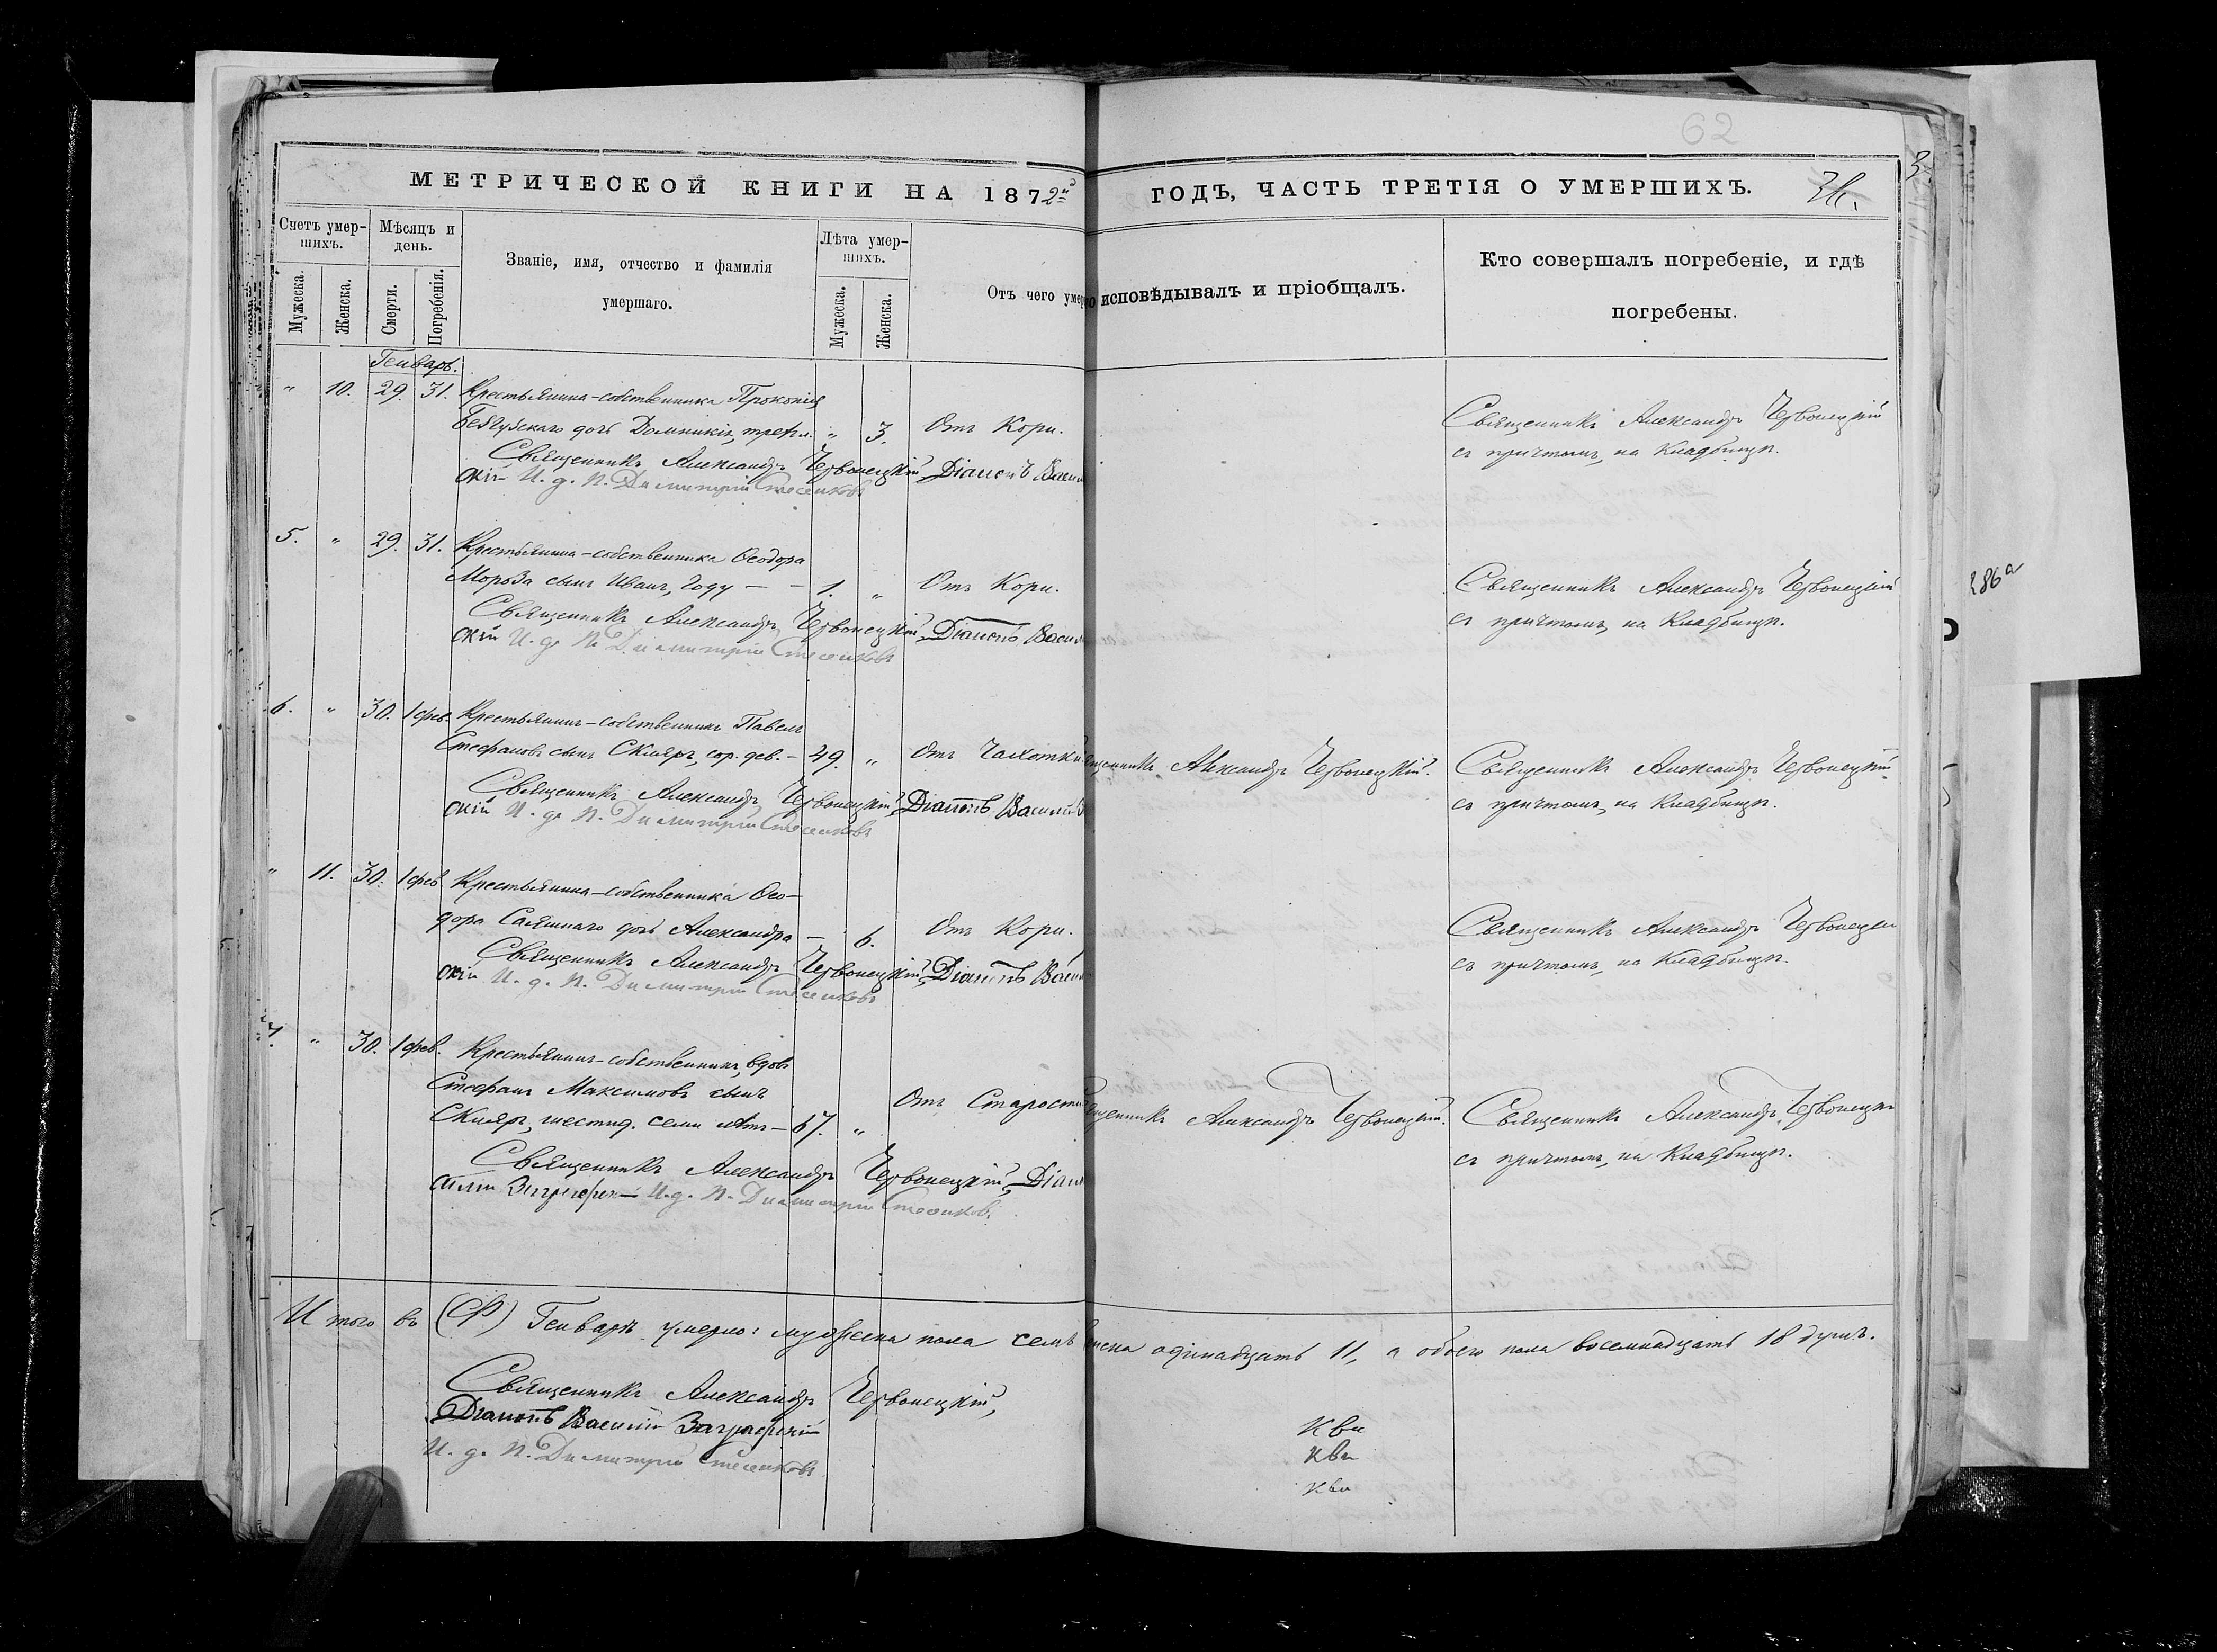 62
МЕТРИЧЕСКОЙ КНИГИ НА 1872й ГОДЪ, ЧАСТЬ ТРЕТІЯ О УМЕРШИХЪ.
Счетъ умершихъ.
Мѣсяцъ и день.
Званіе, имя, отчество и фамилія умершаго.
Лѣта умершихъ.
Отъ чего умер
о исповѣдывалъ и пріобщалъ.
Кто совершалъ погребеніе, и гдѣ погребены.
Мужеска. Женска. Смерти. Погребенія. Мужеска. Женска.
Генварь.
" 10. 29. 31. Крестьянина-собственника Прокопія
дочь Домникія, трехъ л. " 3. Отъ Кори. Священникъ Александръ Червонецкій
съ причтомъ, на Кладбищѣ.
Священникъ Александръ Червонецкій, Діаконъ Васил
скій И. д. П. Димитрій
5. " 29. 31. Крестьянина-собственника Ѳеодора
Мороза сынъ Иванъ, году - - 1. " Отъ Кори. Священникъ Александръ Червонецкій
съ причтомъ, на Кладбищѣ.
Священникъ Александръ Червонецкій, Діаконъ Васил
скій И. д. П. Димитрій
6. " 30. 1 фев. Крестьянинъ-собственникъ Павелъ
Стефановъ сынъ Скляръ, сор. дев. - 49. " Отъ Чахотки щенникъ Александръ Червонецкій. Священникъ Александръ Червонецкій
съ причтомъ, на Кладбищѣ.
Священникъ Александръ Червонецкій, Діаконъ Василій
скій И. д. П. Димитрій
" 11. 30. 1 фев Крестьянина-собственника Ѳео-
дора дочь Александра - 6. Отъ Кори. Священникъ Александръ Червонецкій
съ причтомъ, на Кладбищѣ.
Священникъ Александръ Червонецкій, Діаконъ Васил
скій И. д. П. Димитрій
7. " 30. 1 фев. Крестьянинъ-собственникъ, вдовъ
Стефанъ Максимовъ сынъ
Скляръ, шестид. семи лѣтъ - 67. " Отъ Старости щенникъ Александръ Червонецкій. Священникъ Александръ Червонецкій
съ причтомъ, на Кладбищѣ.
Священникъ Александръ Червонецкій, Діак
силій И. д. П. Димитрій
Итого въ Генварѣ умерло: мужеска пола семь нска одинадцать 11, а обоего пола восемнадцать 18 душъ.
Священникъ Александръ Червонецкій,
Діаконъ Василій
И. д. П. Димитрій
286а